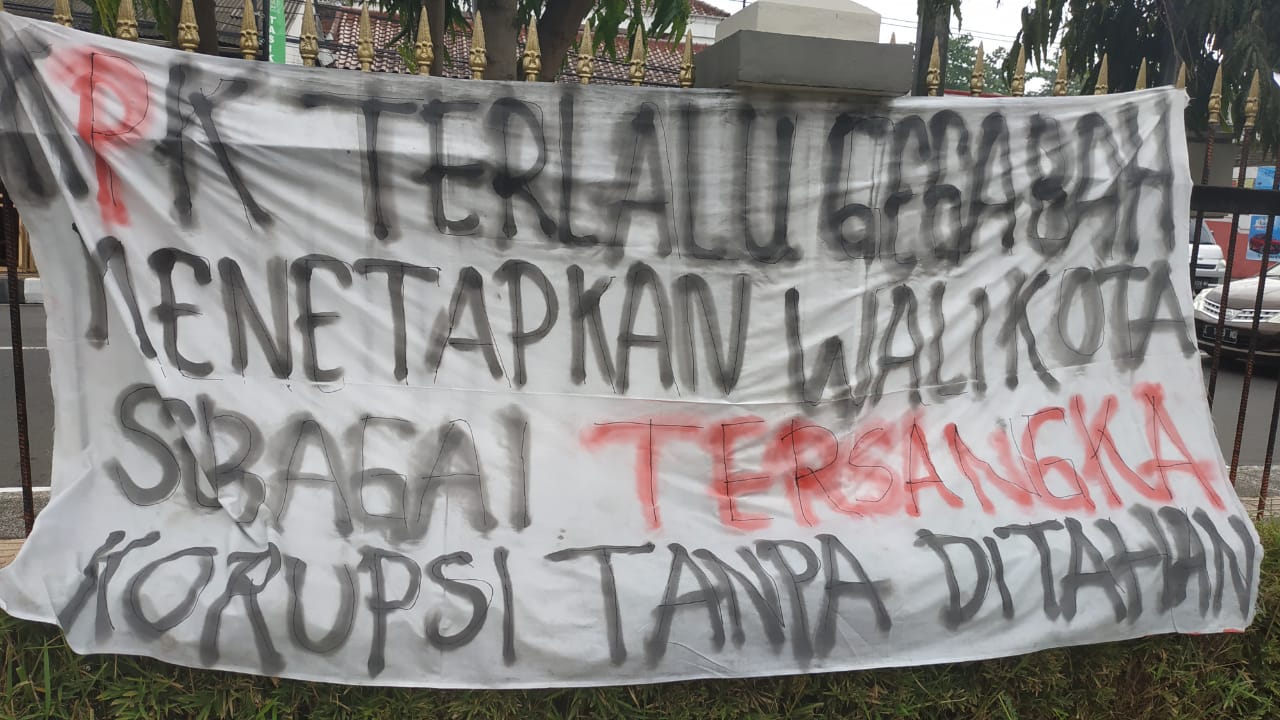 KPK TERLALU GEGABAH
MENETAPKAN WALIKOTA
SBAGAI TERSANGKA
KORUPSI TANPA DITAHAN